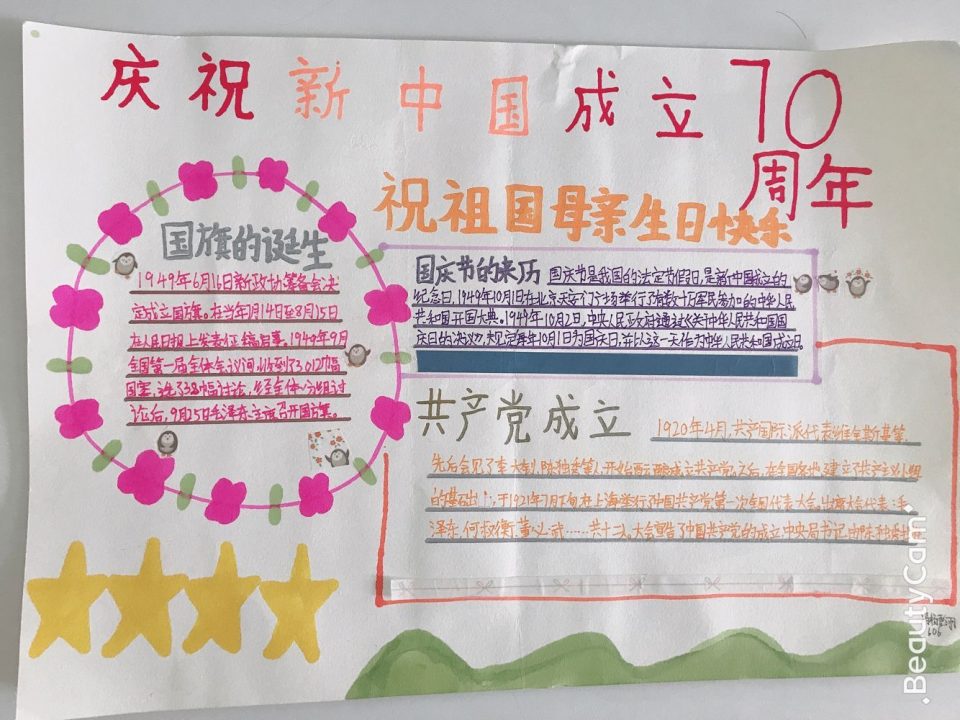 庆祝新中国成立70
周年
祝祖国母亲生日快乐
国旗的诞生
1949年6月16日新政协筹备会决
定成立国旗。在当年7月14日至8月15日
在人民日报上发表征稿启事,1949年9月
全国第一届全体会议间,收到了3,012幅
国案,选了38幅讨论,经全体分组讨
论后,9月25日毛泽东主召开国旗。
国庆节的来历 国庆节是我国的法定节假日,是新中国成立的
纪念日,1949年10月1日在北京天安门广场举行了有数十万军民参加的中华人民
共和国开国大典。1949年10月2日,中央人民政府通过《关于中华人民共和国国
庆日的决议》,规定每年10月1日为国庆日,并以这一天作为中华人民共和国成立日。
共产党成立 1920年4月,共产国际派代表维经斯基等
先后会见了李大钊、陈独秀等人,开始酝酿成立共产党,之后,在全国各地建立了共产主义小组
的基础上,于1921年7月下旬在上海举行了中国共产党第一次全国代表大会。出席大会代表:毛
泽东、何叔衡、董必武……共十二。大会宣告了中国共产党的成立中央局书记由陈独秀
606
.BeautyCam.